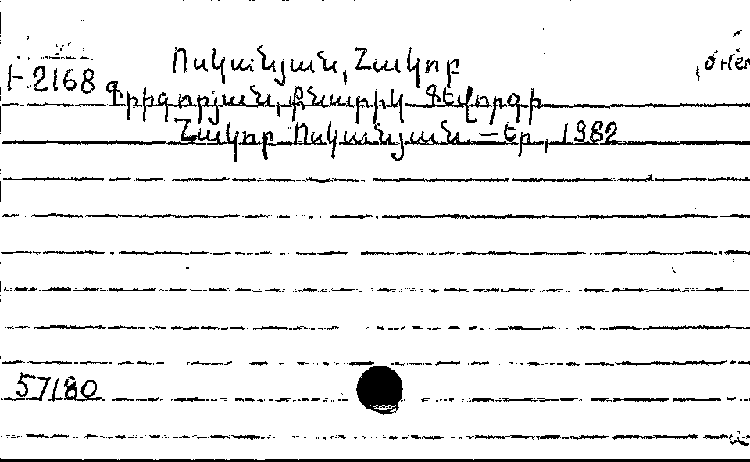 Ոսկանյան, Հակոբ
Է-2168
Գրիգորյան, Քնարիկ Գևորգի
Հակոբ Ոսկանյան – Եր, 1982
57180